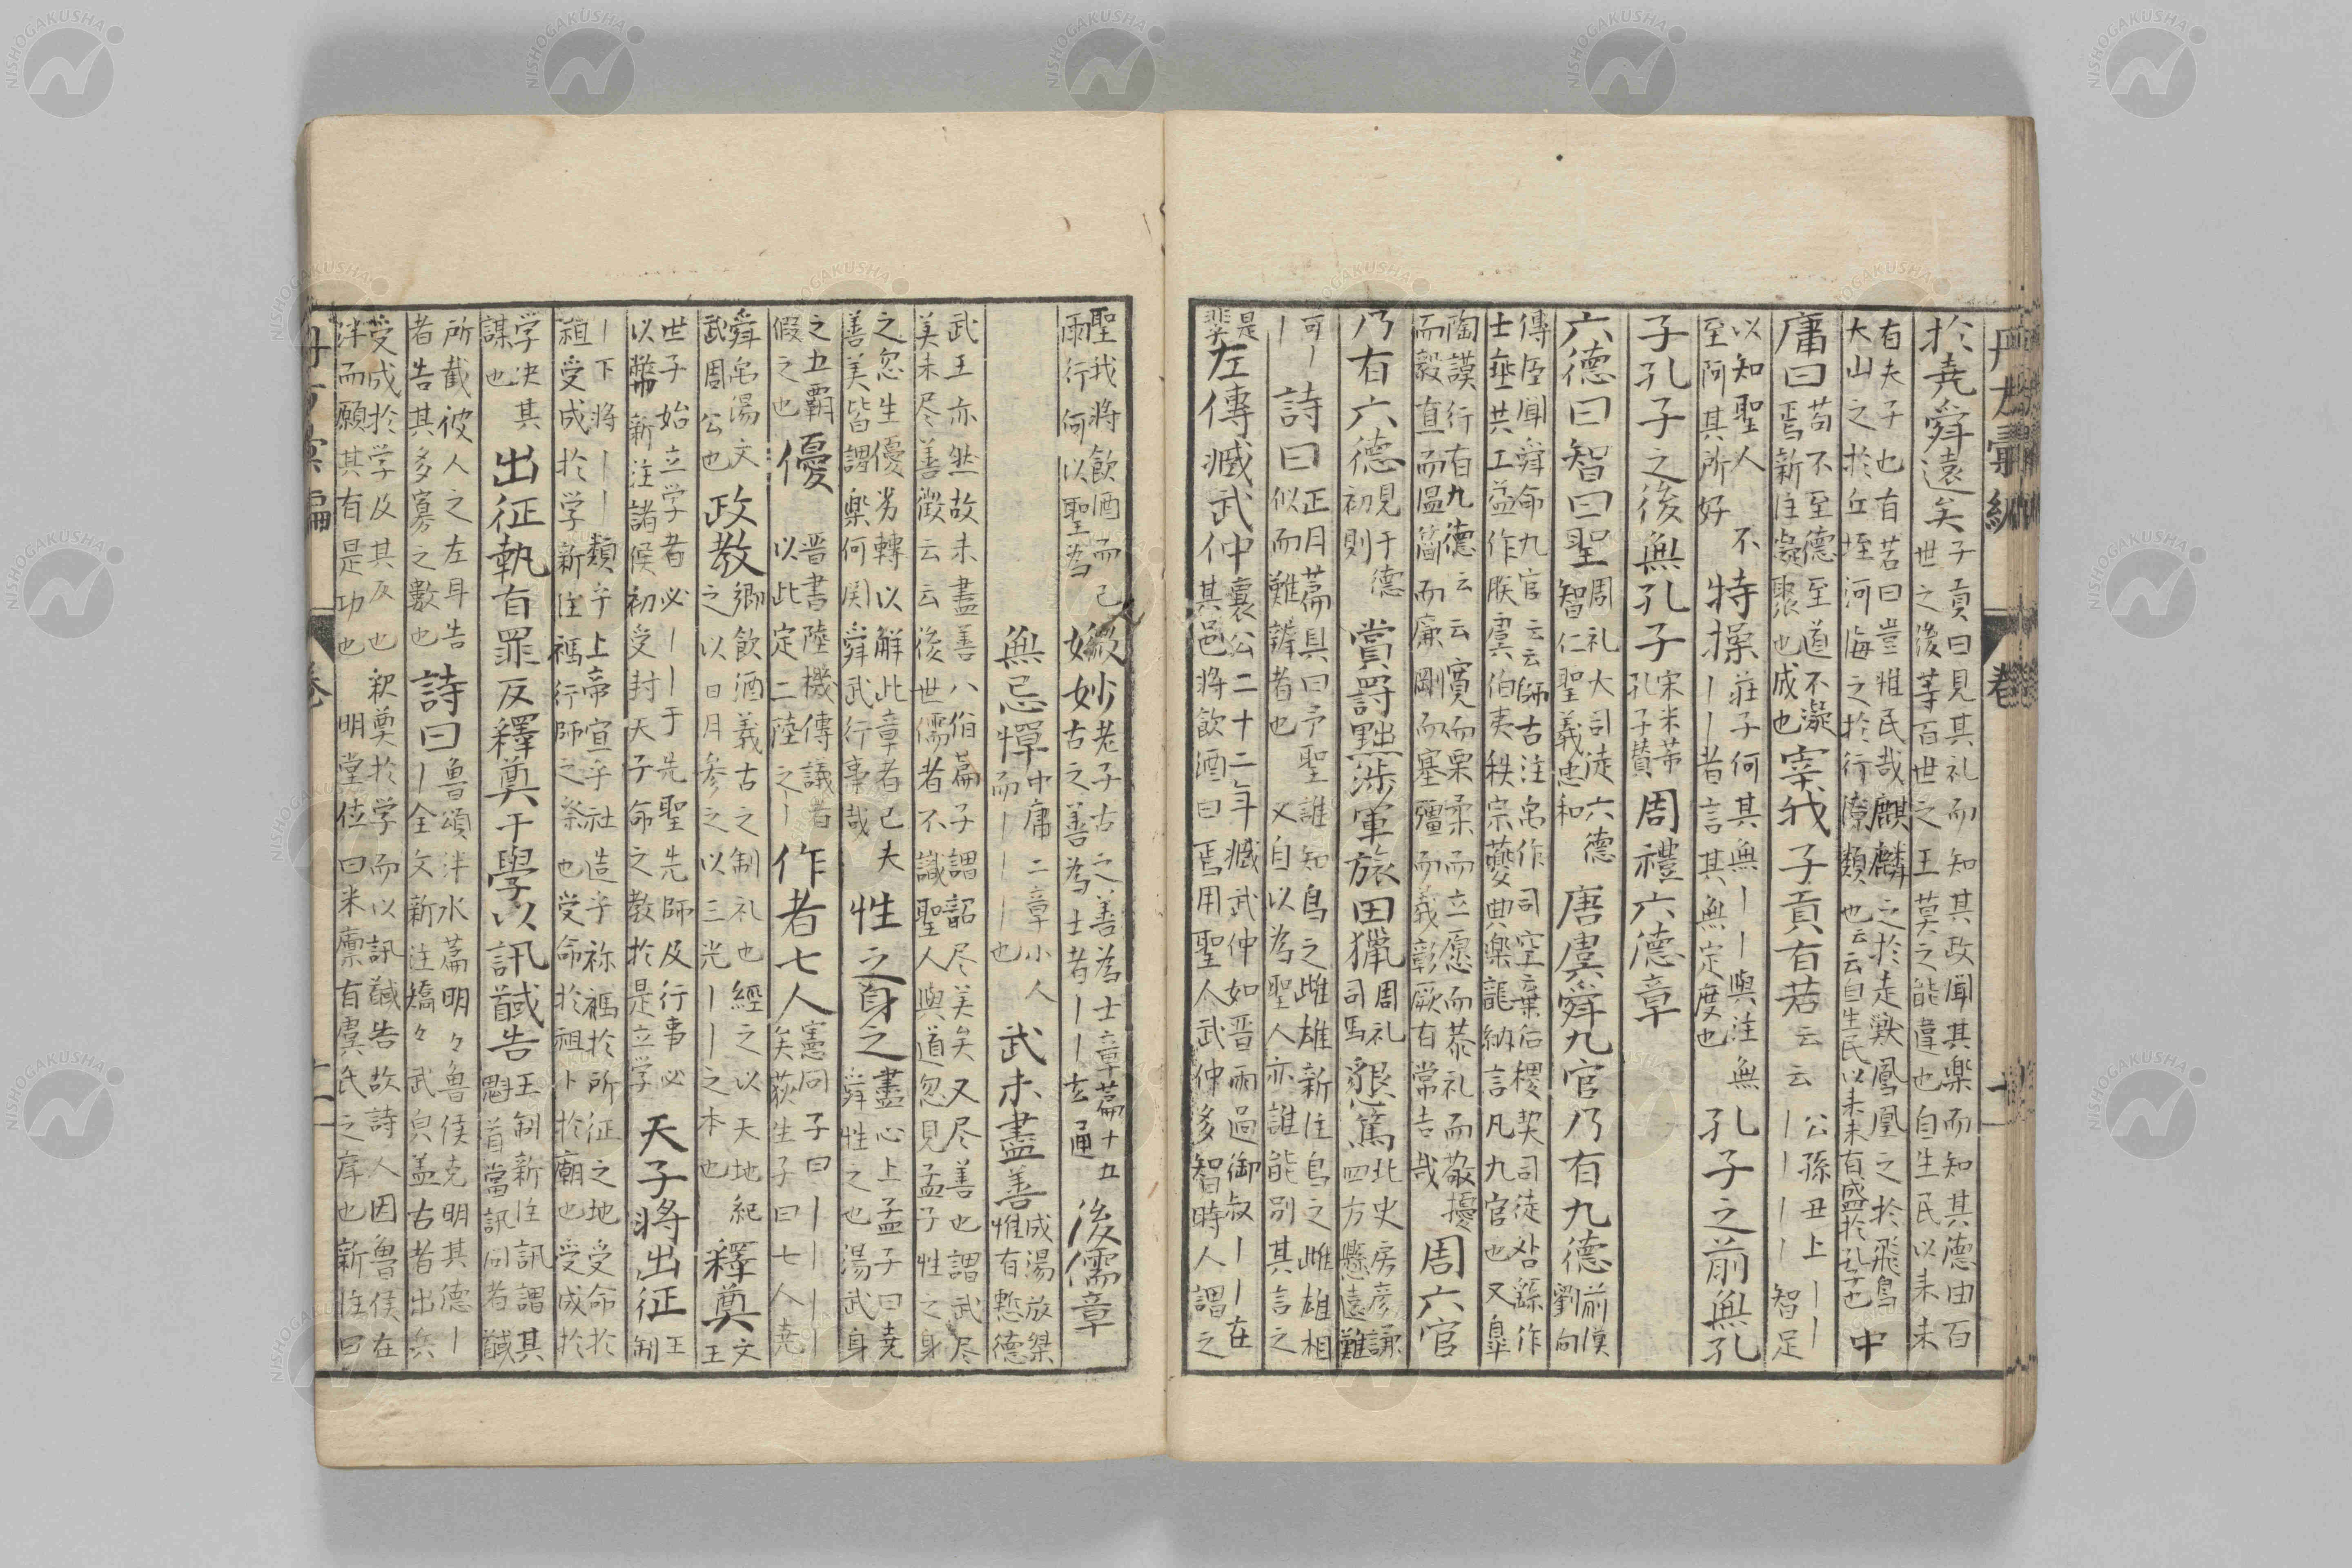 於堯舜遠矣子貢曰見其礼而知其政聞其楽而知其德由百
世之後等百世之王莫之能違也自生民以来未
有夫子也有若曰豈惟民哉麒麟之於走獣鳳凰之於飛鳥
大山之於丘垤河海之於行潦類也云云自生民以来未有盛於孔子也中
庸曰苟不至德至道不凝
焉新注凝聚也成也宰我子貢有若云云公孫丑上｜｜｜｜｜｜智足
以知聖人
至阿其所好不特操荘子何其無｜｜與注無
｜｜者言其無定度也孔子之前無孔
子孔子之後無孔子宋米芾
孔子賛周禮六德章
六德曰智曰聖周礼大司徒六德
智仁聖義忠和唐虞舜九官乃有九德前漢
劉向
傳臣聞舜命九官云云師古注禹作司空棄后稷契司徒咎繇作
士垂共工益作朕虞伯夷秩宗夔典楽龍納言凡九官也又皐
陶謨行有九德云云寛而栗柔而立愿而恭礼而敬擾
而毅直而温簡而廉剛而塞彊而義彰厥有常吉哉周六官
乃有六德初見于德
則賞爵黜渉軍旅田獵周礼
司馬懇篤北史房彦謙
四方懸遠難
可｜
｜詩曰正月篇具曰予聖誰知鳥之雌雄新注鳥之雌雄相
似而難辨者也又自以為聖人亦誰能別其言之
是
左傳臧武仲襄公二十二年臧武仲如晋雨過御叔｜｜在
其邑将飲酒曰焉用聖人武仲多智時人謂之
聖我将飲酒而已
雨行何以聖為微妙老子古之善為士章篇十五
古之善為士者｜｜玄通後儒章
無忌憚中庸二章小人
而｜｜｜也武未盡善成湯放桀
惟有慙德
武王亦然故未盡善八佾篇子謂韶尽美矣又尽善也謂武尽
美未尽善徴云云後世儒者不識聖人與道忽見孟子性之身
之忽生優劣轉以解此章者已夫
善美皆謂楽何関舜武行事哉性之身之盡心上孟子曰堯
舜性之也湯武身
之五覇
假之也優晋書陸機傳議者
以此定二陸之｜作者七人憲問子曰｜｜｜｜
矣荻生子曰七人堯
舜禹湯文
武周公也政教郷飲酒義古之制礼也經之以天地紀
之以日月参之以三光｜｜之本也釋奠文王
世子始立学者必｜｜于先聖先師及行事必
以幣新注諸侯初受封天子命之教於是立学天子將出征王制
｜下将｜｜類乎上帝宜乎社造乎祢禡於所征之地受命於
祖受成於学新注禡行師之祭也受命於祖卜於廟也受成於
学决其
謀也出征執有罪反釋奠于學以訊馘告王制新注訊謂其
魁首當訊问者馘
所截彼人之左耳告
者告其多寡之數也詩曰魯頌泮水篇明々魯侯克明其德｜
｜全文新注矯々武皃盖古者出兵
受成於学及其反也釈奠於学而以訊馘告故詩人因魯侯在
泮而願其有是功也明堂位曰米廩有虞氏之庠也新注曰